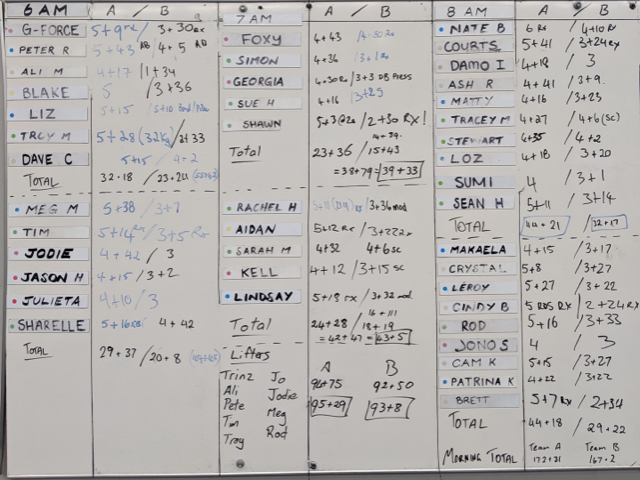 6 AM A / B
G-FORCE 5+9rx / 3+30Rx
PETER R 5+43 / 4+5
ALI M 4+17 / 1+34
BLAKE 5 / 3+36
LIZ 5+15
TROY M 5+28 (32kg) / 2+33
DAVE C 5+15 / 4+2
TOTAL 32+18 / 23+24
MEG M 5+38 / 3+7
TIM 5+14 / 3+5 Rx
JODIE 4+42 / 3
JASON H 4+15 / 3+2
JULIETA 4+10 / 3
SHARELLE 5+16 4+42
TOTAL 29+37 / 20+8
7 AM A / B
FOXY 4+43
SIMON 4+36
GEORGIA 4+30Rx / 3+3 DB Press
SUE H 4+16 / 3+25
SHAWN 5+3 / 2+30 RX!
14+79
Total 23+36 / 15+43
= 38+79 = 39+33
RACHEL H 3+36 mod
AIDAN 5+12 Rx / 3+22 Rx
SARAH M 4+32 4+6 sc
KELL 4+12 / 3+15 sc
LINDSAY 5+18 rx / 3+32 mod
16+111
Total 24+28 / 18+19
= 42+47 = 43+5
Lifters A B
Trinz Jo 94+75 92+50
Ali Jodie
Pete Meg 95+29 93+8
Tim Rod
Troy
8 AM A / B
NATE B 6 Rx / 4+10 Rx
COURTS 5+41 / 3+24 Rx
DAMO I 4+18 / 3
ASH R 4+41 / 3+9
MATTY 4+16 / 3+23
TRACEY M 4+27 / 4+6 (sc)
STEWART 4+35 / 4+2
LOZ 4+18 / 3+20
SUMI 4 / 3+1
SEAN H 5+11 / 3+14
TOTAL 44+21 / 32+17
MAKAELA 4+15 / 3+17
CRYSTAL 5+8 / 3+27
LEROY 5+27 / 3+22
CINDY B 5 RDS RX / 2+24 RX
ROD 5+16 / 3+33
JONO S 4 / 3
CAM K 5+15 / 3+27
PATRINA K 4+22 / 3+22
BRETT 5+7 Rx / 2+34
TOTAL 44+18 / 29+22
MORNING TOTAL Team A 172+21 Team B 167+2